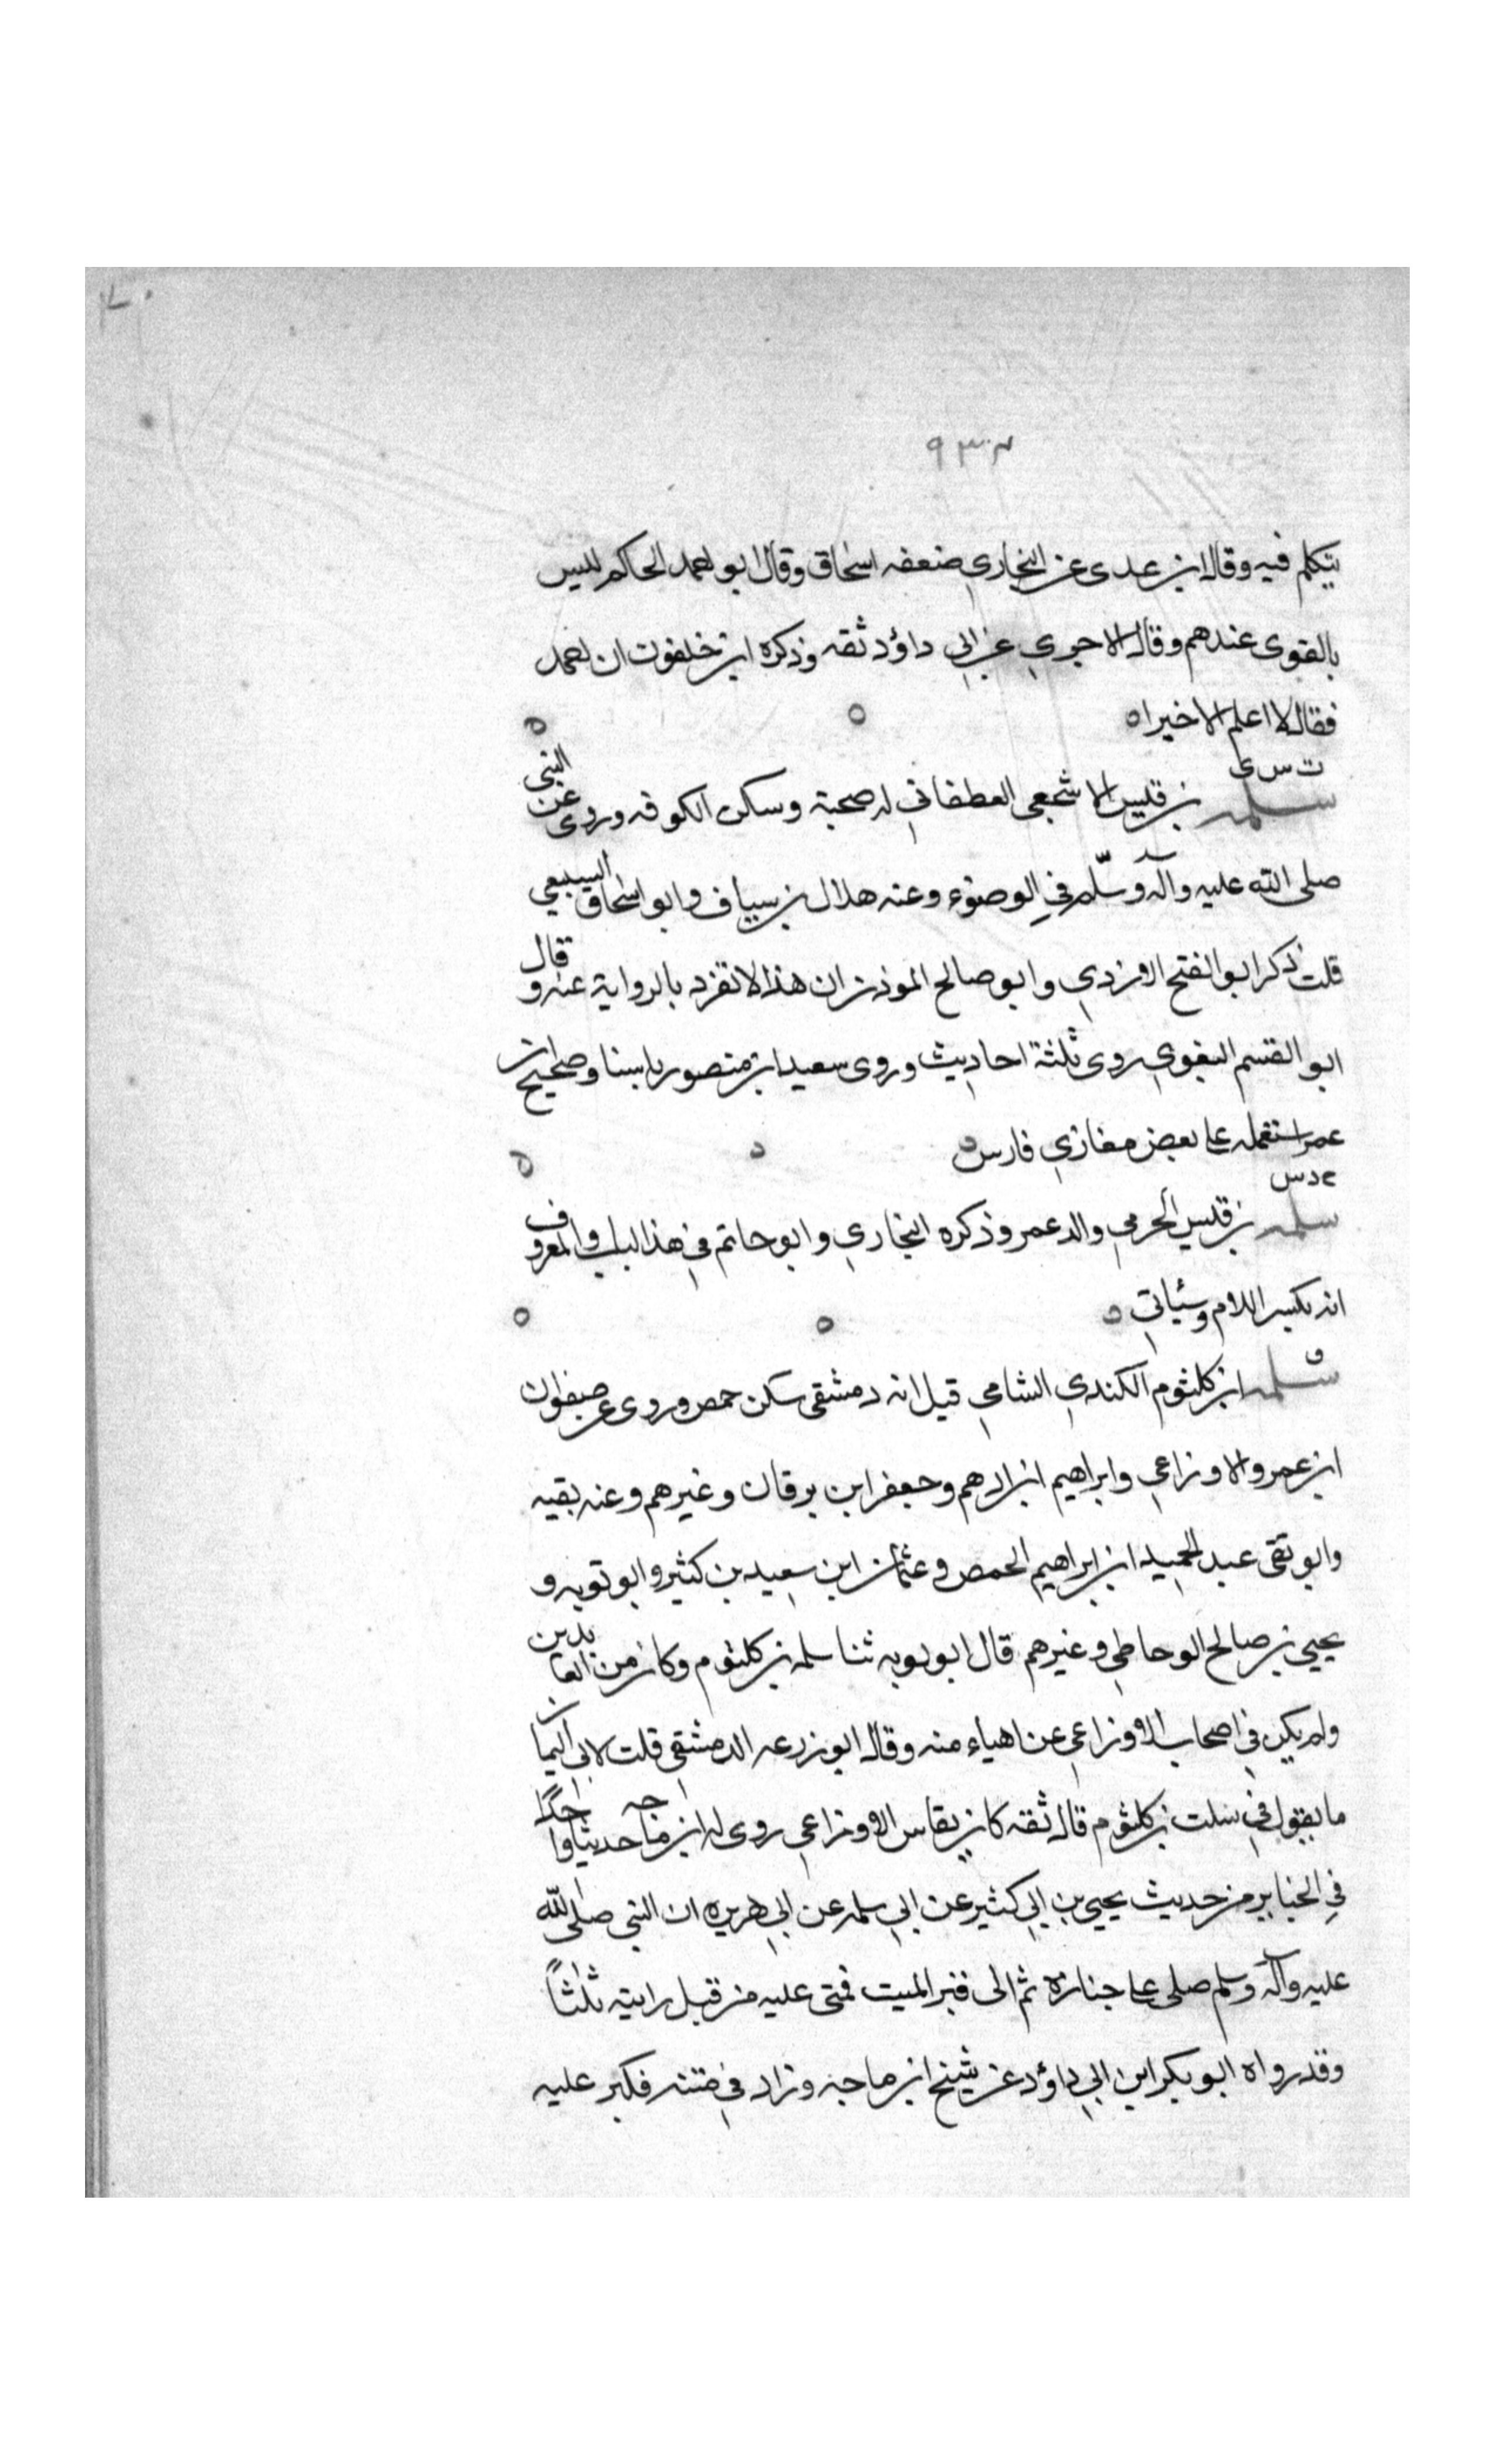 ٩٣٠٢
يتكلم فيه وقال ابن عدى عن البخاري ضعفه اسحاق وقال ابو احمد الحاكم ليس
بالقوى عندهم وقال الاجري عن ابي داؤد ثقه وذكره ابن خلفون ان احمد
فقال لا اعلم الا خيرا ه
ت س ق
سلمه بن قليس الاشجعى الغطفاني له صحبة وسكن الكوفه وروى عن النبى
صلى الله عليه وآله وسلم في الوضوء وعنه هلال بن سياف وابو اسحاق السبيعي
قلت ذكر ابو الفتح الازدي وابو صالح الموذن ان هذا لا تفرد بالرواية عنه وقال
ابو القسم البغوي روى ثلثة احاديث وروى سعيد ابن منصور باسناد صحيح ان
عمر استعمله على بعض مغازي فارس
خ د س
سلمه بن قليس الجرمي والد عمرو ذكره البخاري وابو حاتم في هذا الباب والمعروف
انه بكسر اللام وسيأتي
ق
سلمه ابن كلثوم الكندي الشامي قيل انه دمشقى سكن حمص وروى عن صفوان
ابن عمرو والاوزاعي وابراهيم ابن ادهم وجعفر ابن برقان وغيرهم وعنه بقيه
وابو تقى عبد الحميد ابن ابراهيم الحمصى وعثمان ابن سعيد بن كثير وابو توبه و
يحيى بن صالح الوحاظي وغيرهم قال ابو توبه ثنا سلمه بن كلثوم وكان من العابدين
ولم يكن في اصحاب الاوزاعي عن اهياء منه وقال ابو زرعه الدمشقى قلت لابى اليمان
ما يقول في سلمت بن كلثوم قال ثقه كان يقاس الاوزاعي روى له ابن ماجه حديثا واحدًا
في الجنايز من حديث يحيى بن ابي كثير عن ابي سلمه عن ابي هريره ان النبى صلى الله
عليه وآله وسلم صلى على جنازة ثم اتى قبر الميت فحثى عليه من قبل رايته ثلثًا
وقد رواه ابو بكر ابن ابي داؤد عن شيخ ابن ماجه وزاد في متنه فكبر عليه